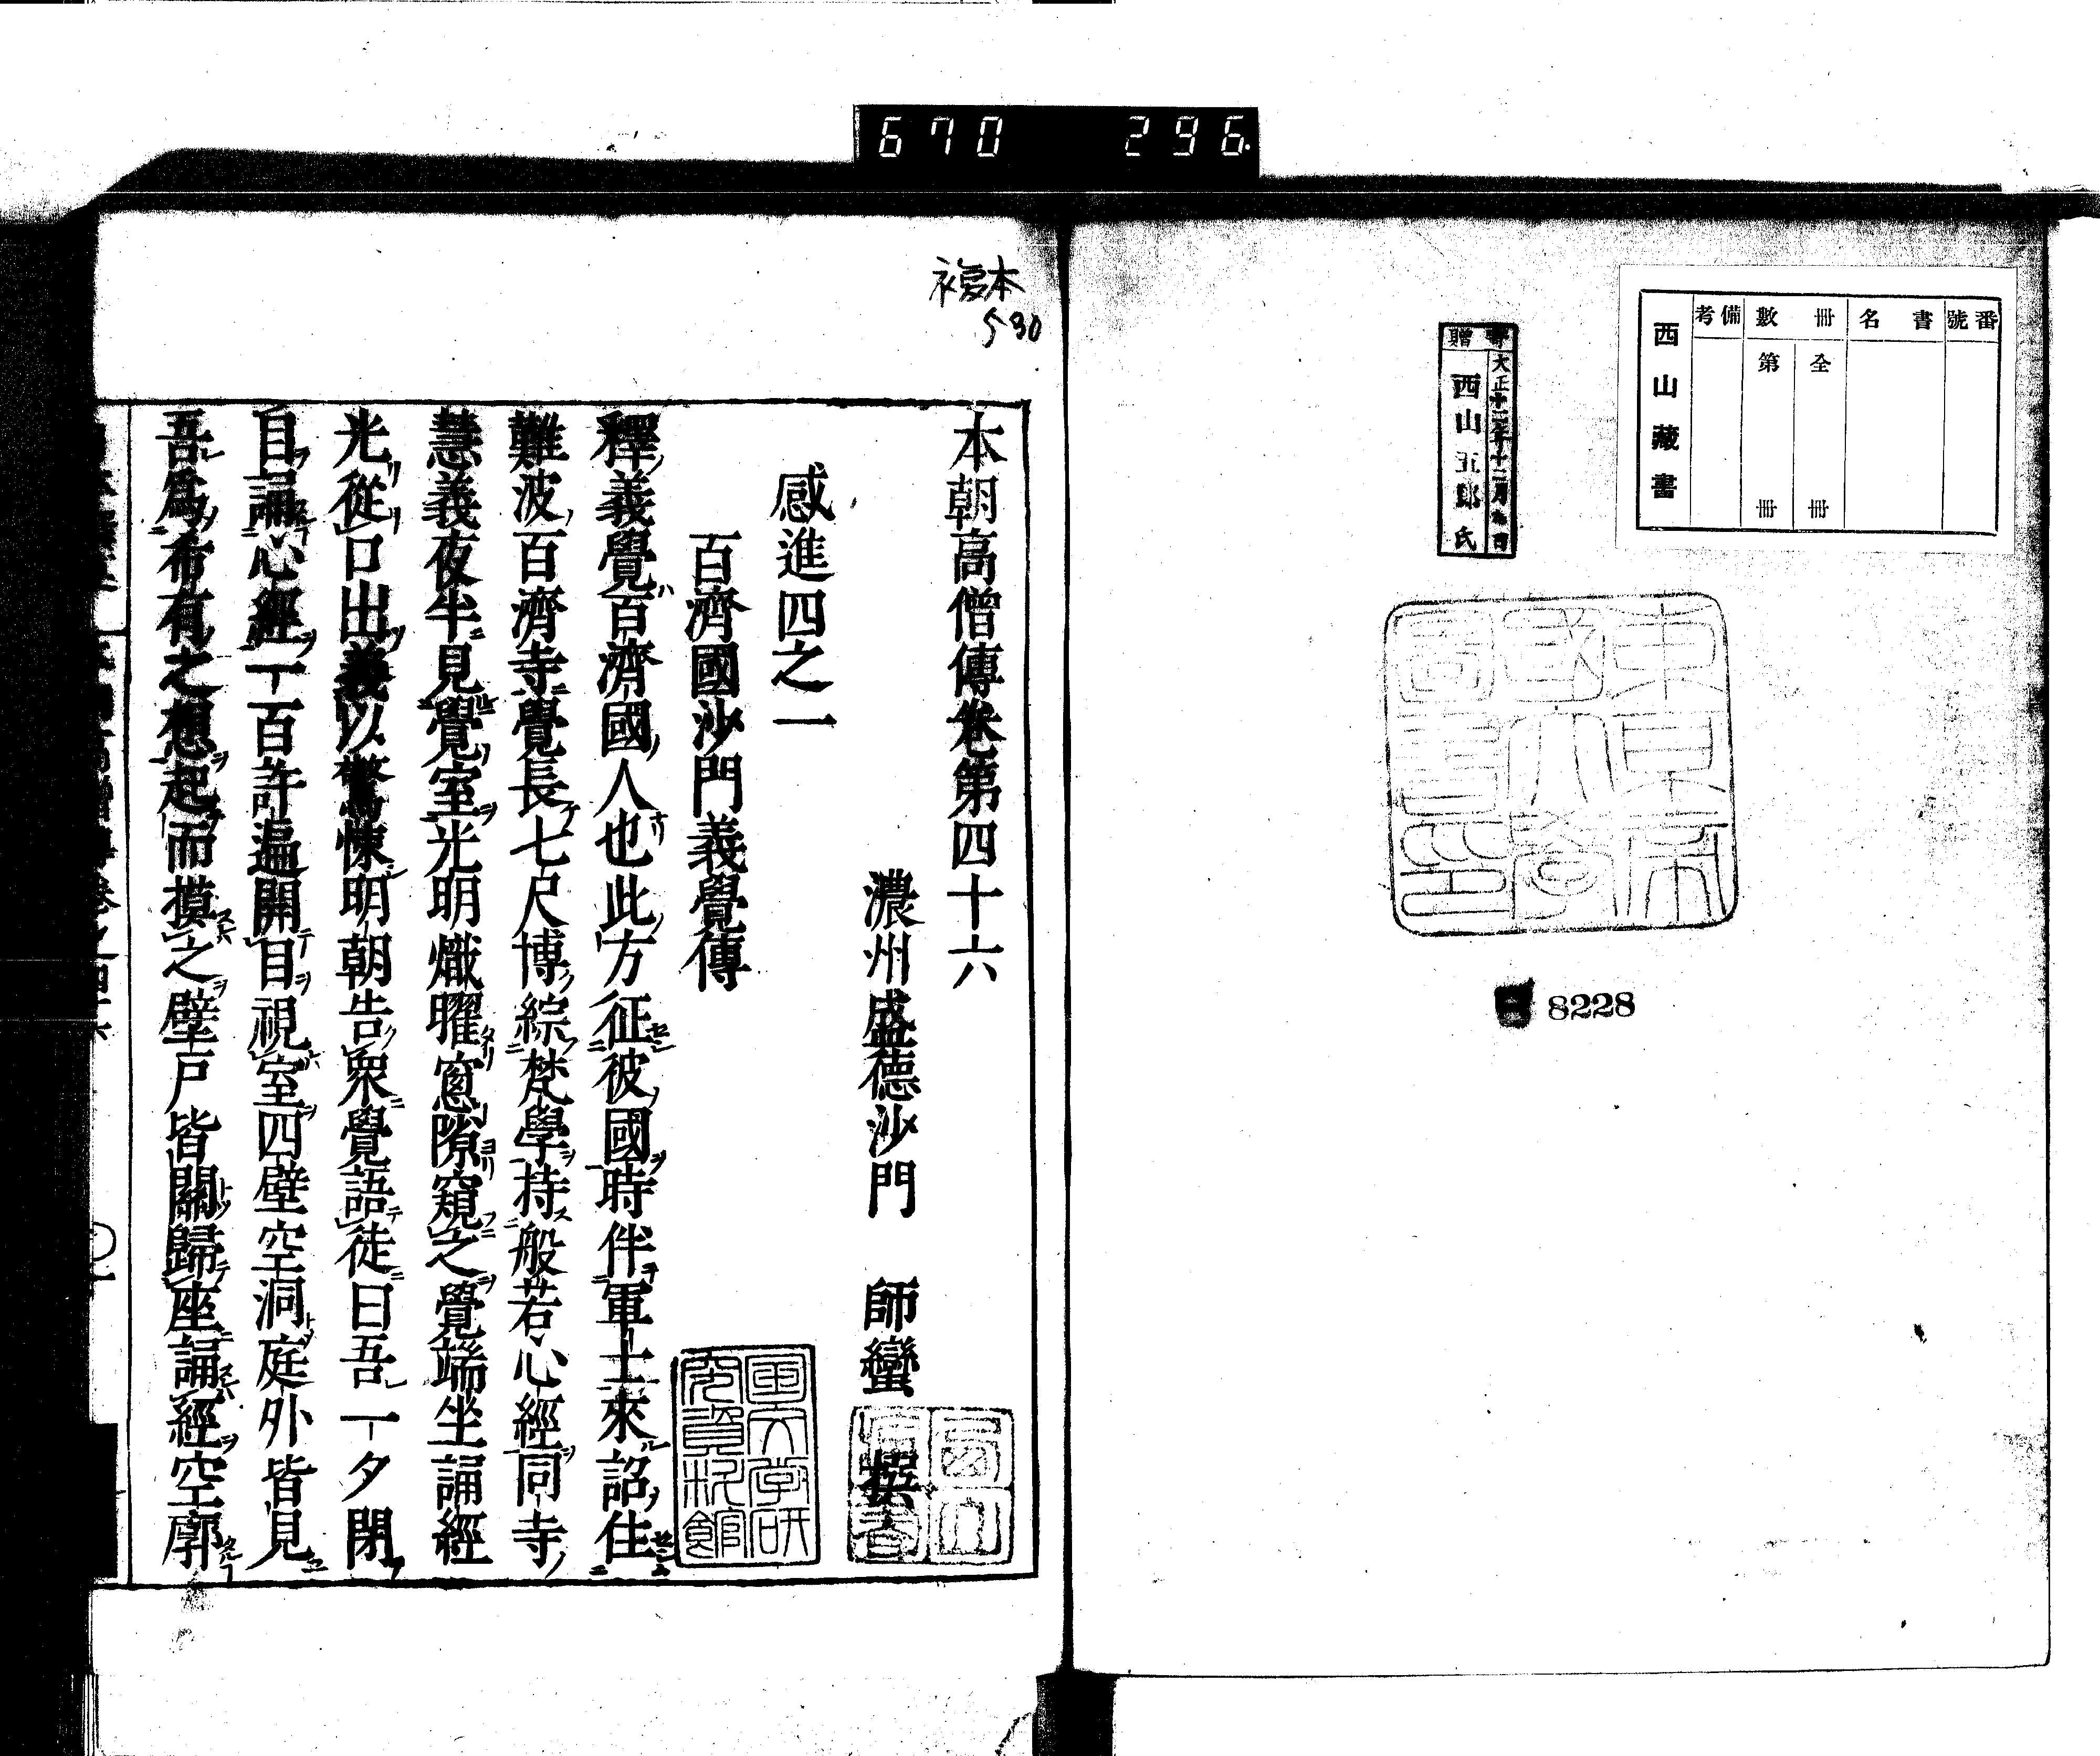 670 296
番號
書名
冊數
全 冊
第 冊
備考
西山藏書
寄贈
大正十二年十二月 日
西山五郎氏
東京帝國大學圖書印
8228
複本
530
本朝高僧傳卷第四十六
濃州盛德沙門 師蠻 撰
感進四之一
百濟國沙門義覺傳
釋義覺百濟國人也此方征彼國時伴軍士來詔住
難波百濟寺覺長七尺博綜梵學持般若心經同寺
慧義夜半見覺室光明熾曜窓隙窺之覺端坐誦經
光從口出義以驚悚明朝告衆覺語徒曰吾一夕閉
目誦心經一百許遍開目視室四壁空洞庭外皆見
吾爲希有之想起而摸之壁戸皆關歸座誦經空廓
國文学研究資料館